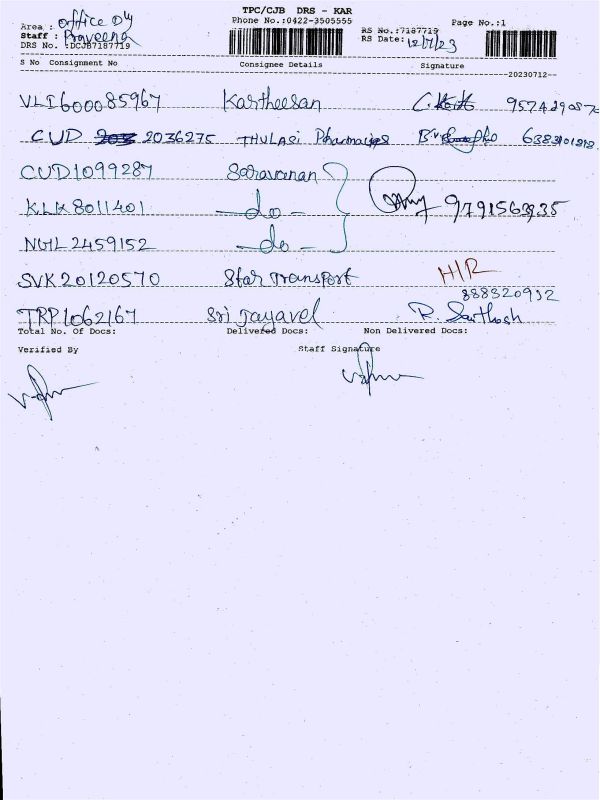 TPC/CJB DRS - KAR
Phone No.:0422-3505555 Page No.:1
Area : office 04
Staff : Praveena RS No.:7187719
DRS No. :DCJB7187719 RS Date: 12/7/23
S No Consignment No Consignee Details Signature
--20230712--
VLI600085967 Kartheesan
CUD 2036275 THULASI
CUD1099287 Saravanan
KLK8011401 -do- 9791563935
NGL2459152 -do-
SVK20120570 Star Transport H/R
888320912
TRP1062167 Sri Jayavel R. Santhosh
Total No. Of Docs: Delivered Docs: Non Delivered Docs:
Verified By Staff Signature